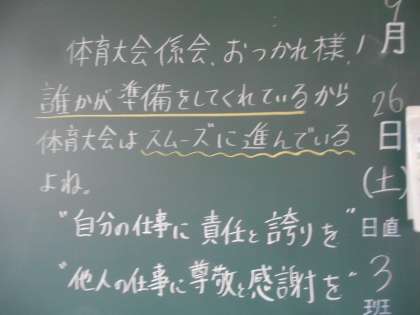 体育大会係会、おつかれ様、
誰かが準備をしてくれているから
体育大会はスムーズに進んでいる
よね。
"自分の仕事に責任と誇りを"
"他人の仕事に尊敬と感謝を"
9月
26日
(土)
日直
3班